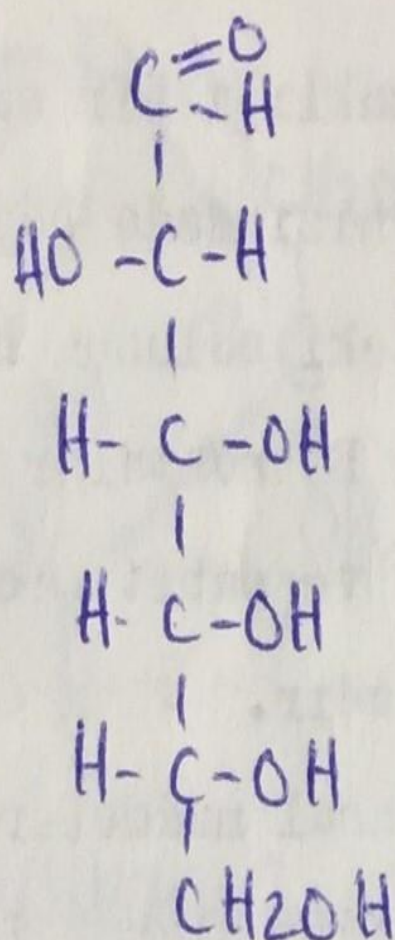 C=O
-H
HO-C-H
H-C-OH
H-C-OH
H-C-OH
CH2OH